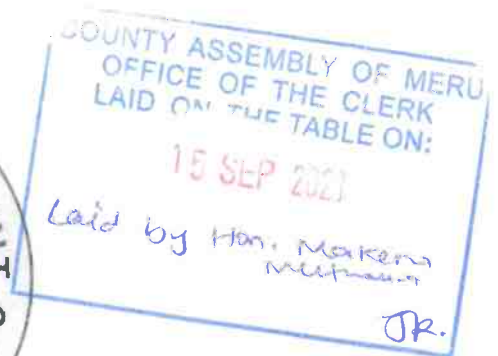 COUNTY ASSEMBLY OF MERU
OFFICE OF THE CLERK
LAID ON THE TABLE ON:
15 SEP
Laid by Hon. Makena
JR.